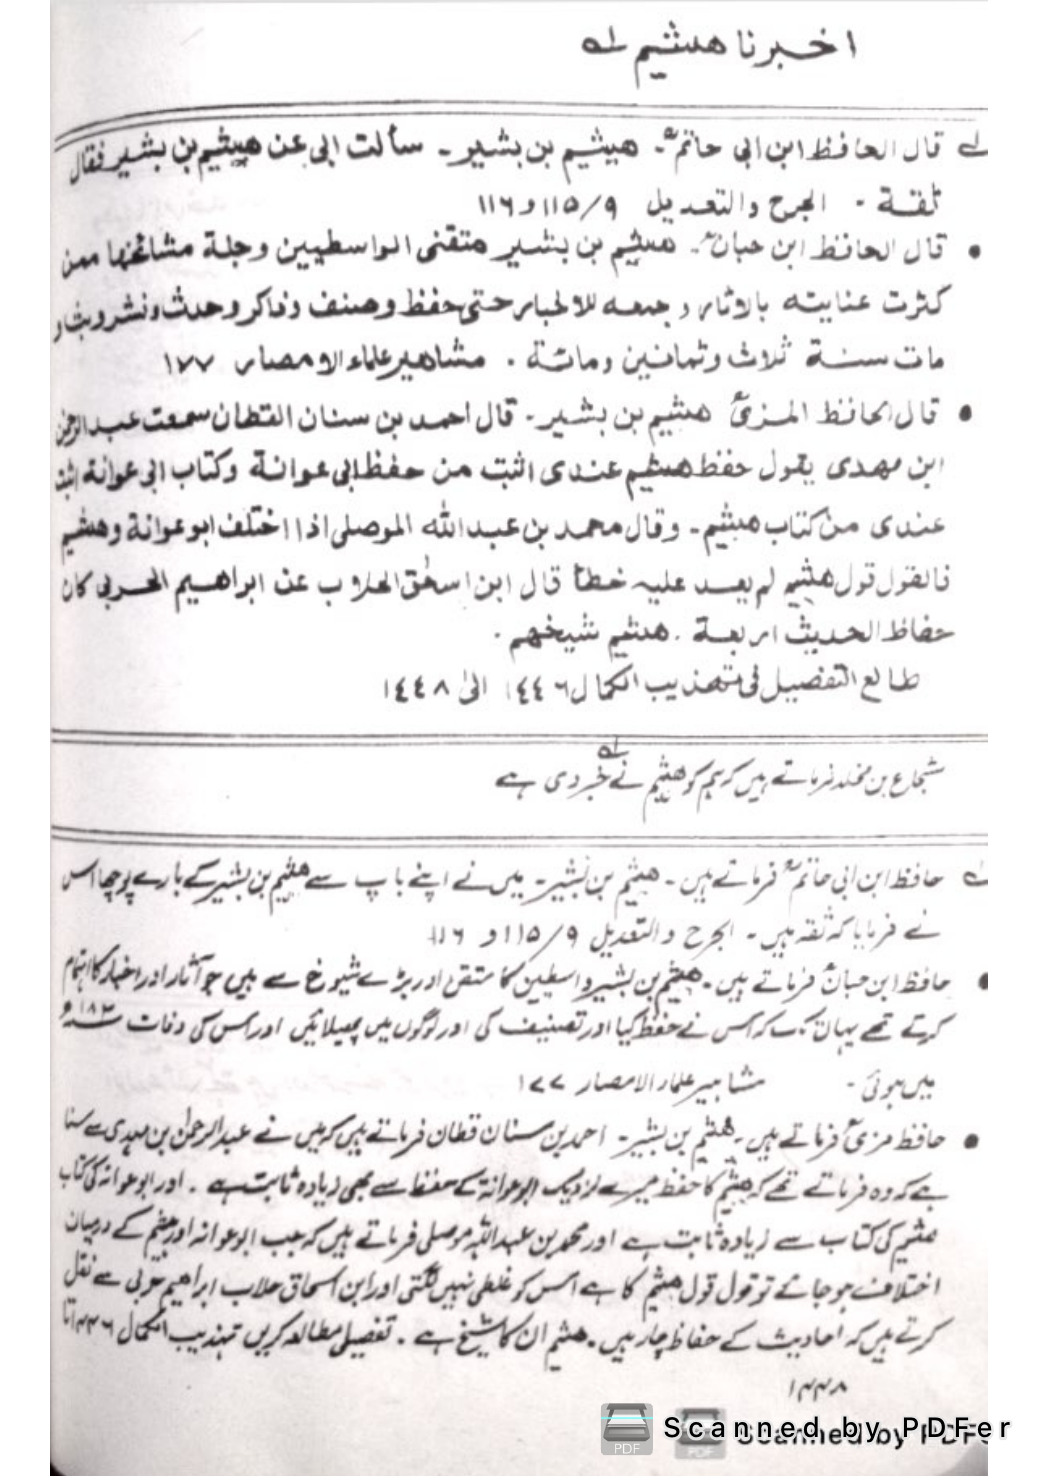 اخبرنا هشيم لہ
لہ قال الحافظ ابن ابی حاتمؒ۔ هیشیم بن بشیر۔ سألت ابی عن هیشیم بن بشیر فقال
ثقة ۔ الجرح والتعدیل ۱۱۵/۹ و ۱۱۶
• قال الحافظ ابن حبانؒ۔ هشیم بن بشیر متقنی الواسطیین وجلة مشائخها ممن
کثرت عنایته بالاثار و جمعه للاخبار حتی حفظ وصنف وذاکر وحدث ونشر وبث و
مات سنة ثلاث وثمانین ومائة . مشاهیر علماء الامصار ۱۷۷
• قال الحافظ المزیؒ هشیم بن بشیر۔ قال احمد بن سنان القطان سمعت عبد الرحمٰن
ابن مهدی یقول حفظ هشیم عندی اثبت من حفظ ابی عوانة وکتاب ابی عوانة اثبت
عندی من کتاب هشیم۔ وقال محمد بن عبد الله الموصلی اذا اختلف ابو عوانة وهشیم
فالقول قول هشیم لم یعد علیه خطأ قال ابن اسحٰق الحلاب عن ابراهیم الحربی کان
حفاظ الحدیث اربعة . هشیم شیخهم .
طالع التفصیل فی تهذیب الکمال ۱٤٤٦ الیٰ ۱٤٤۸
شجاع بن مخلد فرماتے ہیں کہ ہم کو هشیم نے لہ خبر دی ہے
لہ حافظ ابن ابی حاتمؒ فرماتے ہیں۔ هشیم بن بشیر۔ میں نے اپنے باپ سے هشیم بن بشیر کے بارے پوچھا اس
نے فرمایا کہ ثقہ ہیں۔ الجرح والتعدیل ۱۱۵/۹ و ۱۱۶
• حافظ ابن حبانؒ فرماتے ہیں۔ هشیم بن بشیر واسطین کا متقن اور بڑے شیوخ سے ہیں جو آثار اور اخبار کا اہتمام
کرتے تھے یہاں تک کہ اس نے حفظ کیا اور تصنیف کی اور لوگوں میں پھیلائیں اور اس کی وفات سنہ ۱۸۳ھ
میں ہوئی۔ مشاہیر علماء الامصار ۱۷۷
• حافظ مزیؒ فرماتے ہیں۔ هشیم بن بشیر۔ احمد بن سنان قطان فرماتے ہیں کہ میں نے عبد الرحمٰن بن مہدی سے سنا
ہے کہ وہ فرماتے تھے کہ هشیم کا حفظ میرے نزدیک ابو عوانۃ کے حفظ سے بھی زیادہ ثابت ہے . اور ابو عوانہ کی کتاب
هشیم کی کتاب سے زیادہ ثابت ہے اور محمد بن عبد اللہ موصلی فرماتے ہیں کہ جب ابو عوانہ اور هشیم کے درمیان
اختلاف ہو جائے تو قول قول هشیم کا ہے اس کو غلطی نہیں لگتی اور ابن اسحاق حلاب ابراہیم حربی سے نقل
کرتے ہیں کہ احادیث کے حفاظ چار ہیں۔ هشیم ان کا شیخ ہے . تفصیل مطالعہ کریں تہذیب الکمال ۱۴۴۶ تا
۱۴۴۸
Scanned by PDFer
Scanned by PDFe